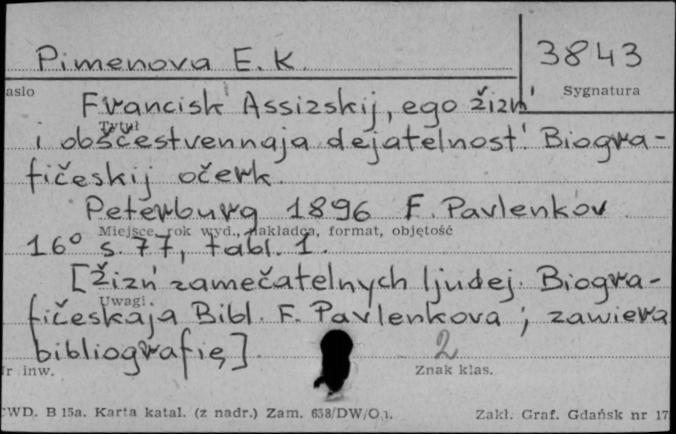 Pimenova E. K. 3843
asło Sygnatura
Francisk Assizskij, ego žizn'
Tytuł
i obščestvennaja dejatelnost'. Biogra-
fičeskij očerk.
Peterburg 1896 F. Pavlenkov
Miejsce, rok wyd., nakładca, format, objętość
16° s. 77, tabl. 1.
[Žizń zamečatelnych ljudej. Biogra-
Uwagi
fičeskaja Bibl. F. Pavlenkova ; zawiera
bibliografię].
2
r inw. Znak klas.
WD. B 15a. Karta katal. (z nadr.) Zam. 638/DW/O Zakł. Graf. Gdańsk nr 17